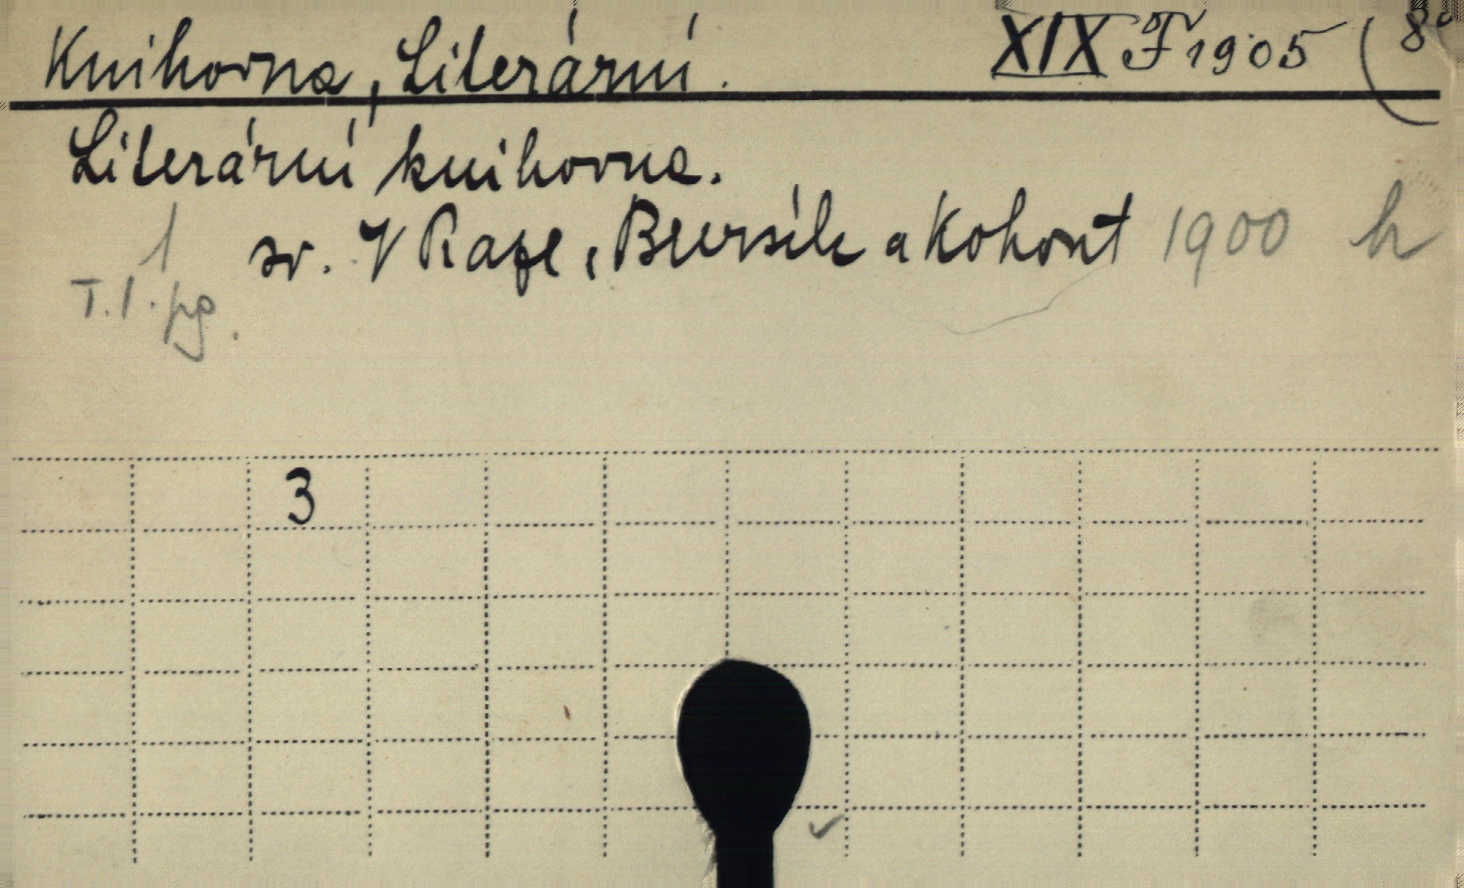 Knihovna, Literární. XIX F 1905 (8°
Literární knihovna.
1 sv. V Praze, Bursík a Kohout 1900 h
T.I. pg.
3